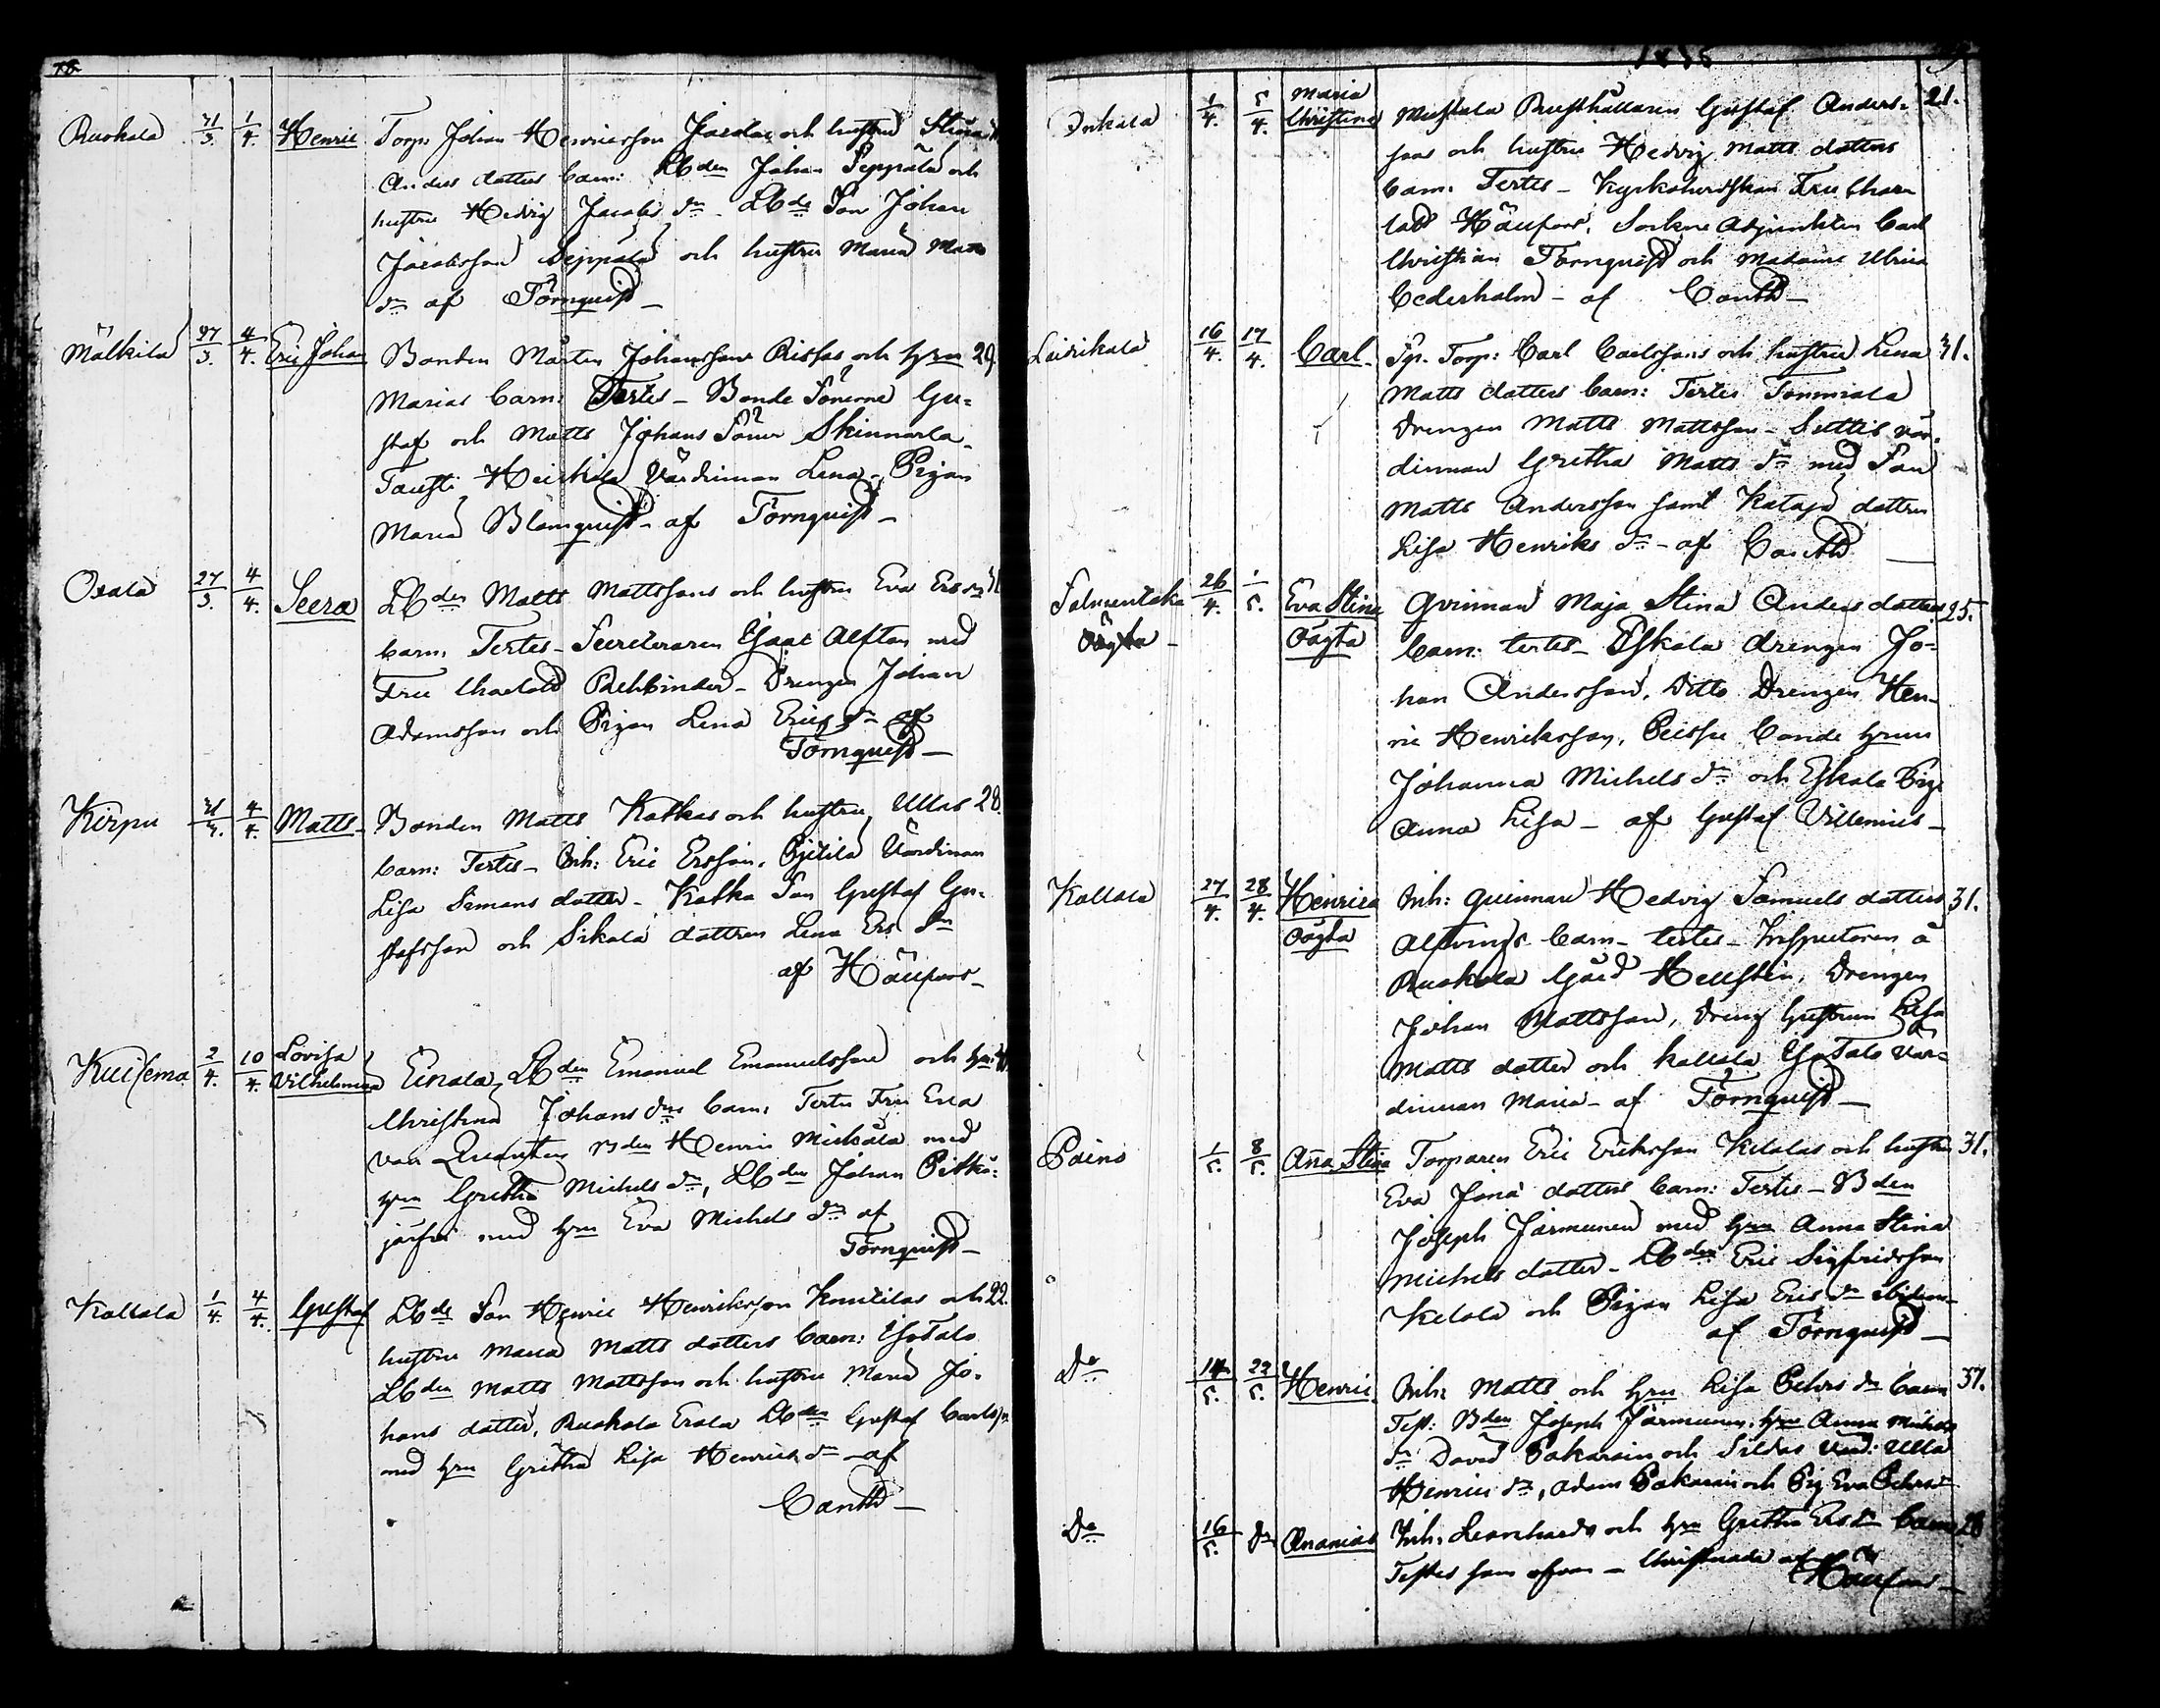 78
Ruskala 31/3. 1/4. Henric Torp. Johan Henricsson Jacolas och hustru Stina
Anders dotters barn: Lbden Johan Seppälä och
hustru Hedvig Jacobs dr Lbds Son Johan
Jacobsson Seppälä och hustru Maria Matts
dr af Törnquist
Mälkilä 27/3. 4/4. Eric Johan Bonden Mårten Johanssons Ristas och hru 29.
Marias barn: Testes Bonde Sönerne Gu=
staf och Matts Johans Söner Skinnarla
Tausti Heickilä Värdinnan Lena Pigan
Maria Blomquist af Törnquist
27/3. 4/4. Lbden Matts Mattssons och hustru Eva Ers dr
barn: Testes Secreteraren Isaac Alftan med
Fru Charlotta Rehbinder Drengen Johan
Adamsson och Pigan Lena Erics dr af
Törnquist
Kirpu 31/3. 4/4. Matts Bonden Matts Katkas och hustru Ullas 28.
barn: Testes Inh: Eric Ersson, Värdinnan
Lisa Simons dotter Katka Son Gustaf Gu=
stafsson och Sikala dottren Lena Ers dr
af Häufvors
Kuisema 2/4. 10/4. Lovisa
Vilhelmina Lbden Emanuel Emanuelssons och hru
Christina Johans drs barn: Testes Fru Eva
von Quanten Bden Henric Mickälä med
hru Gretha Michels dr, Lbden Johan Pitkä=
järfvi med hru Eva Michels dr af
Törnquist
Kallala 1/4. 4/4. Gustaf Lbds Son Henric Henriksson Knutilas och 22.
hustru Maria Matts dotters barn: IsoTalo
Lbden Matts Mattsson och hustru Maria Jo=
hans dotter, Ruskala Erola Lbden Gustaf Carlss.
med hru Gretha Lisa Henrichs dr af
Canth
1835
Inkala 1/4. 5/4. Maria
Christina Mustala Rusthållaren Gustaf Anders= 21.
sons och hustru Hedvig Matts dotters
barn. Testes Kyrkoherdskan Fru Char
lott Häufvors, Sockne Adjunkten Carl
Christian Törnquist och Madame Ulrica
Cederholm af Canth
16/4. 17/4. Carl. Torp: Carl Carlssons och hustru Lena 31.
Matts dotters barn: Testes Tommola
Drengen Matts Mattsson Suttis vär=
dinnan Gretha Matts dr med Son
Matts Andersson samt Kataja dottren
Lisa Henriks dr af Canth
26/4. 1/5. Eva Stina
Oägta Qvinnan Maja Stina Anders dotters 25.
barn. testes Eskola drengen Jo=
han Andersson, Ditto Drengen Hen=
ric Henriksson, bonde hrun
Johanna Michels dr och Eskola Pig
Anna Lisa af Gustaf Villenius
Kallala 27/4. 28/4. Henrica
Oägta Inh: qvinnan Hedvig Samuels dotters 31.
barn testes Inspectoren å
Ruskala Gård Hellsten, Drengen
Johan Mattsson, Dreng hustrun Lisa
Matts dotter och Kallala IsoTalo vär=
dinnan Maria af Törnquist
Paino 1/5. 8/5. Aña Stina Torparen Eric Ericksson Kelalas och hustru 31.
Eva Jona dotters barn: Testes Bden
Joseph Järmunen med hru Anna Stina
Michels dotter Lbden Eric Sigfridsson
Kelala och Pigan Lisa Erics dr ibidem
af Törnquist
Do 14/5. 22/5. Henric Inh: Matts och hru Lisa Pehrs dr barn 37.
Test: Bden Joseph Järmunen, hru Anna Michels
dr David Pakarain och Sildas Värd: Ulla
Henrics dr, Adam Pakarain och Pig Eva Pehrs dr
Do 16/5. Do Ananias Inh. Leonhards och hru Gretha Ers dr barn 28
Testes som ofvan Christnade af Häufvors